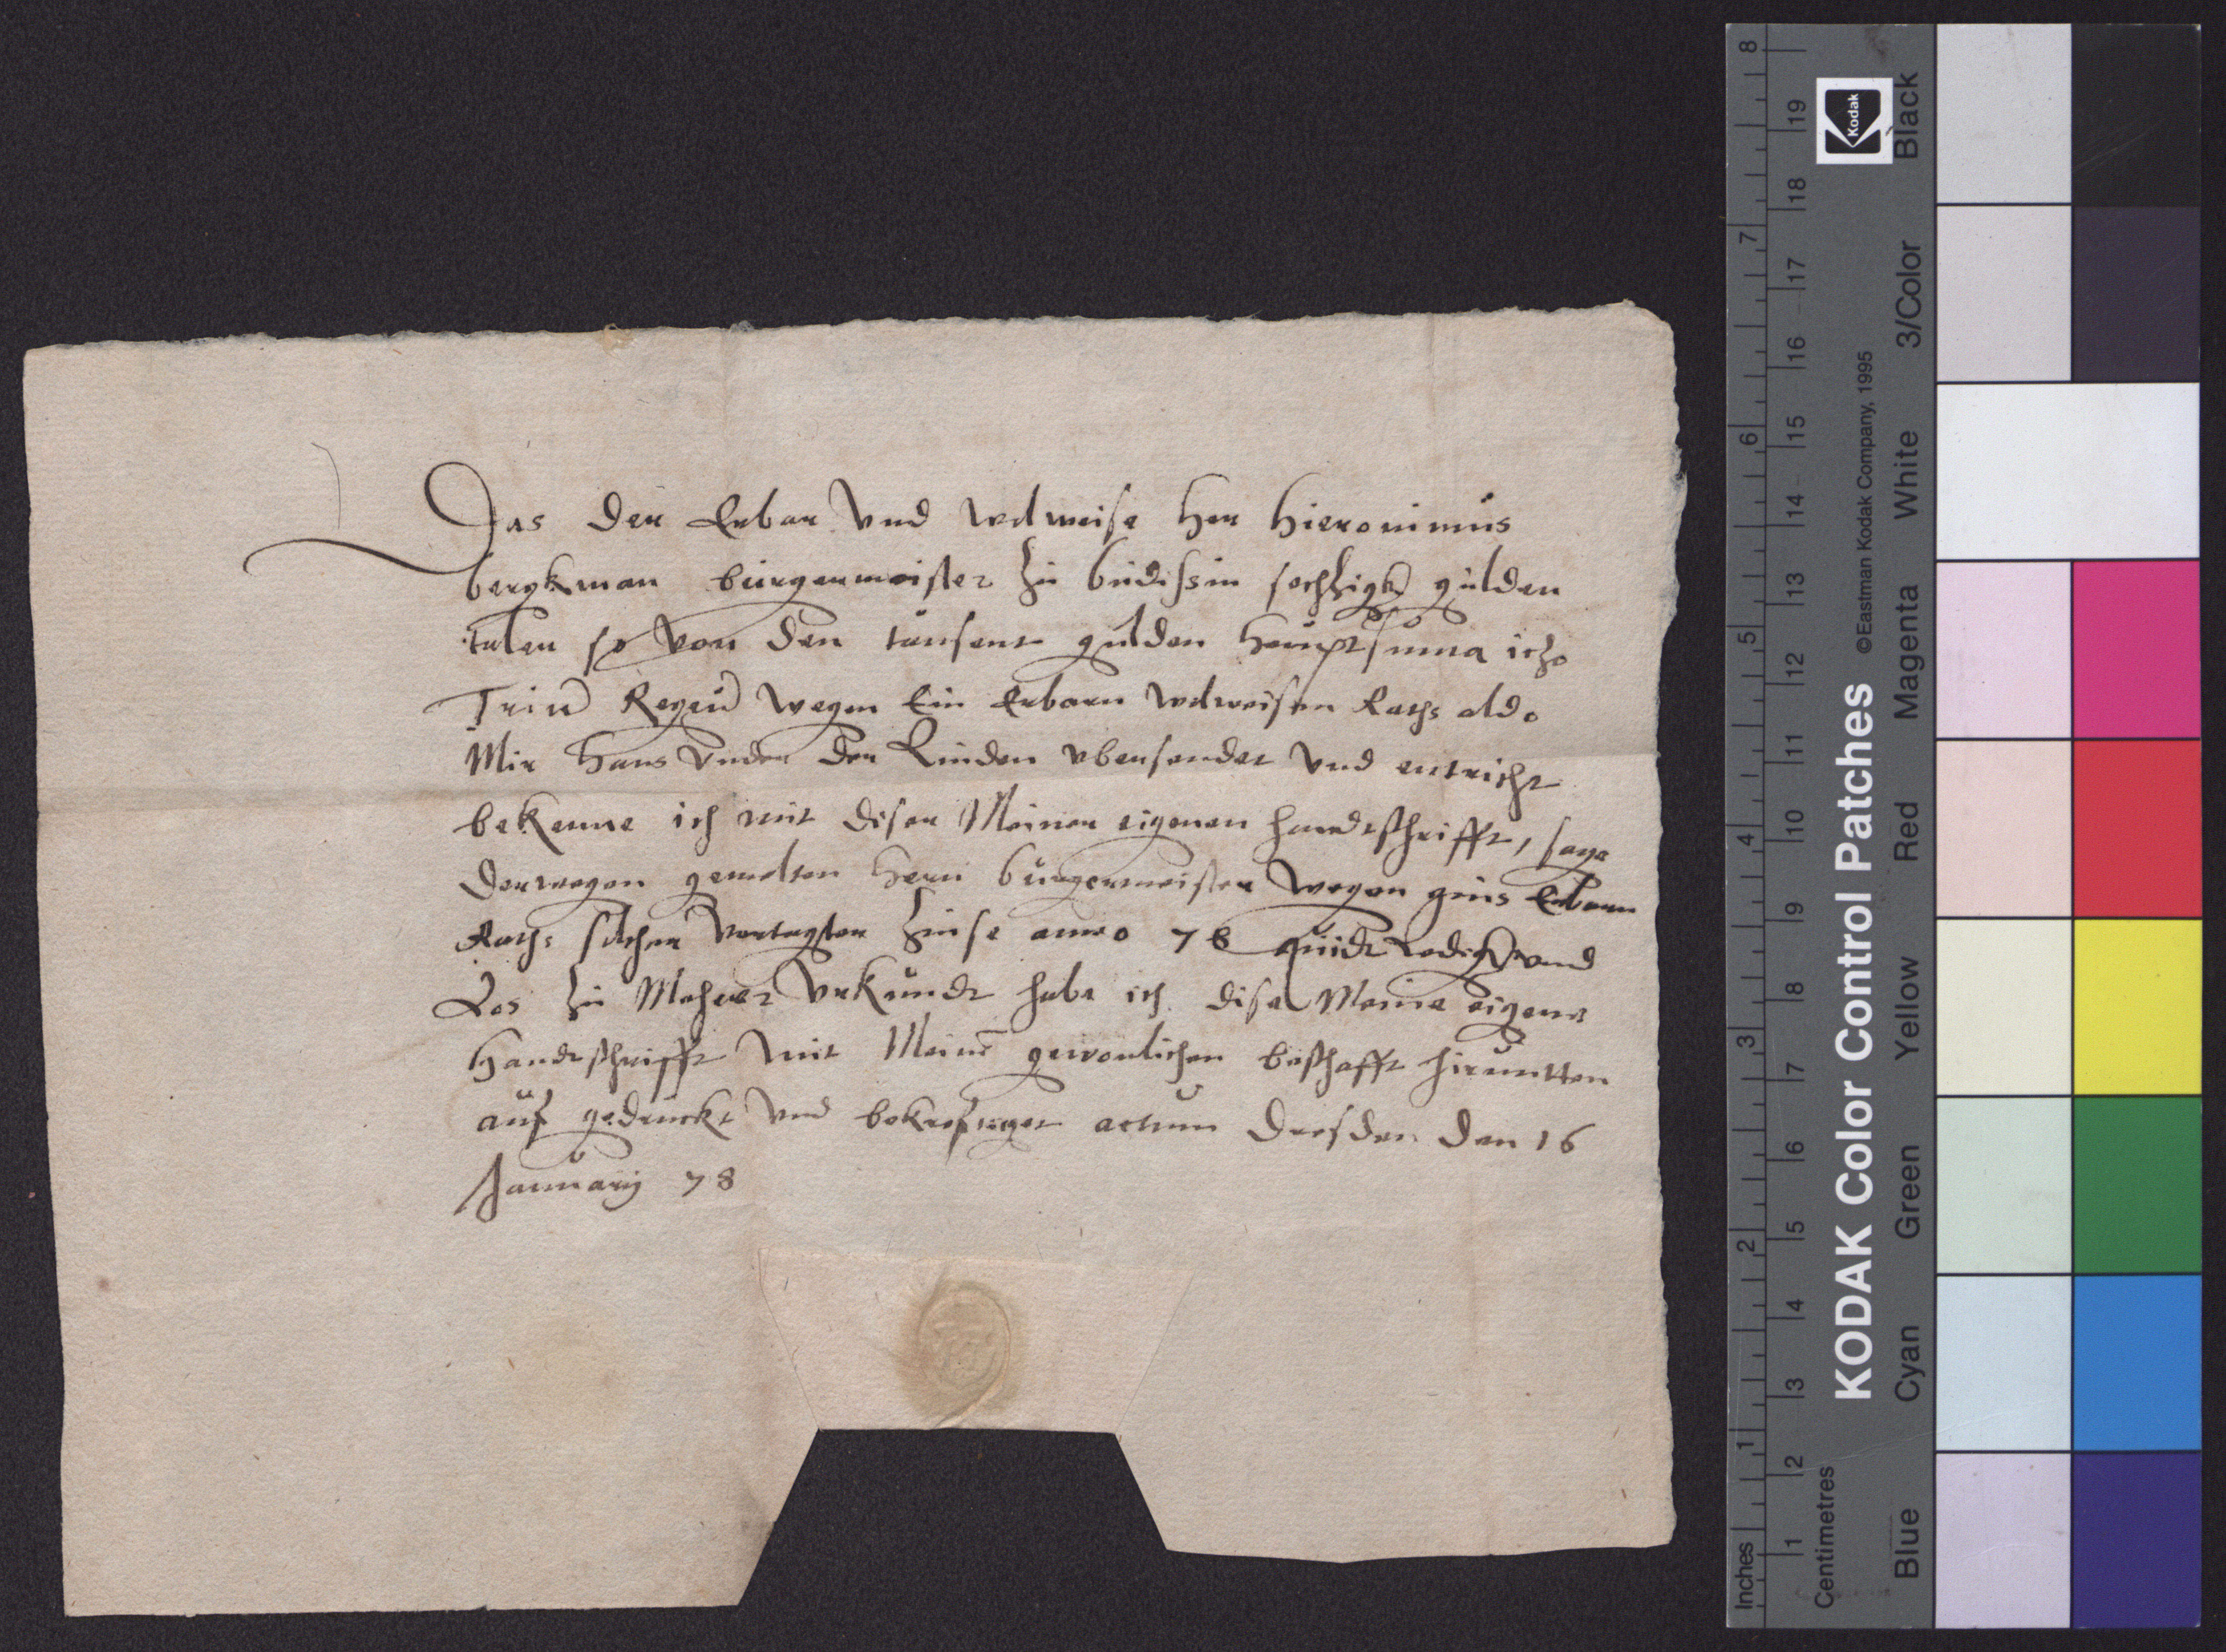 Das der Erbar vnd wolweise her hieronimus
bergkman burgermeister zu budissin sechzigk gulden
taler so von den tausent gulden hauptsuma
Trium Regum wegen Ein Erbarn wolweisen Raths aldo
Mir Hans vnder der Linden vbersendet vnd entricht
bekenne ich mit diser Meiner eigenen handtschrifft, sage
derwegen gemelten hern burgermeister wegen Erbarn
Raths solcher vertagten zinse anno 78 quidt ledigk vnd
Los zu Meherer vrkundt habe ich dise Meine eigene
handtschrifft mit Meinem gewonlichen hiruntten
auf gedruckt vnd bekrefftiget actum Dresden den 16
January 78
Inches 1 2 3 4 5 6 7 8
Centimetres 1 2 3 4 5 6 7 8 9 10 11 12 13 14 15 16 17 18 19
KODAK Color Control Patches ©Eastman Kodak Company, 1995
Kodak
Blue Cyan Green Yellow Red Magenta White 3/Color Black